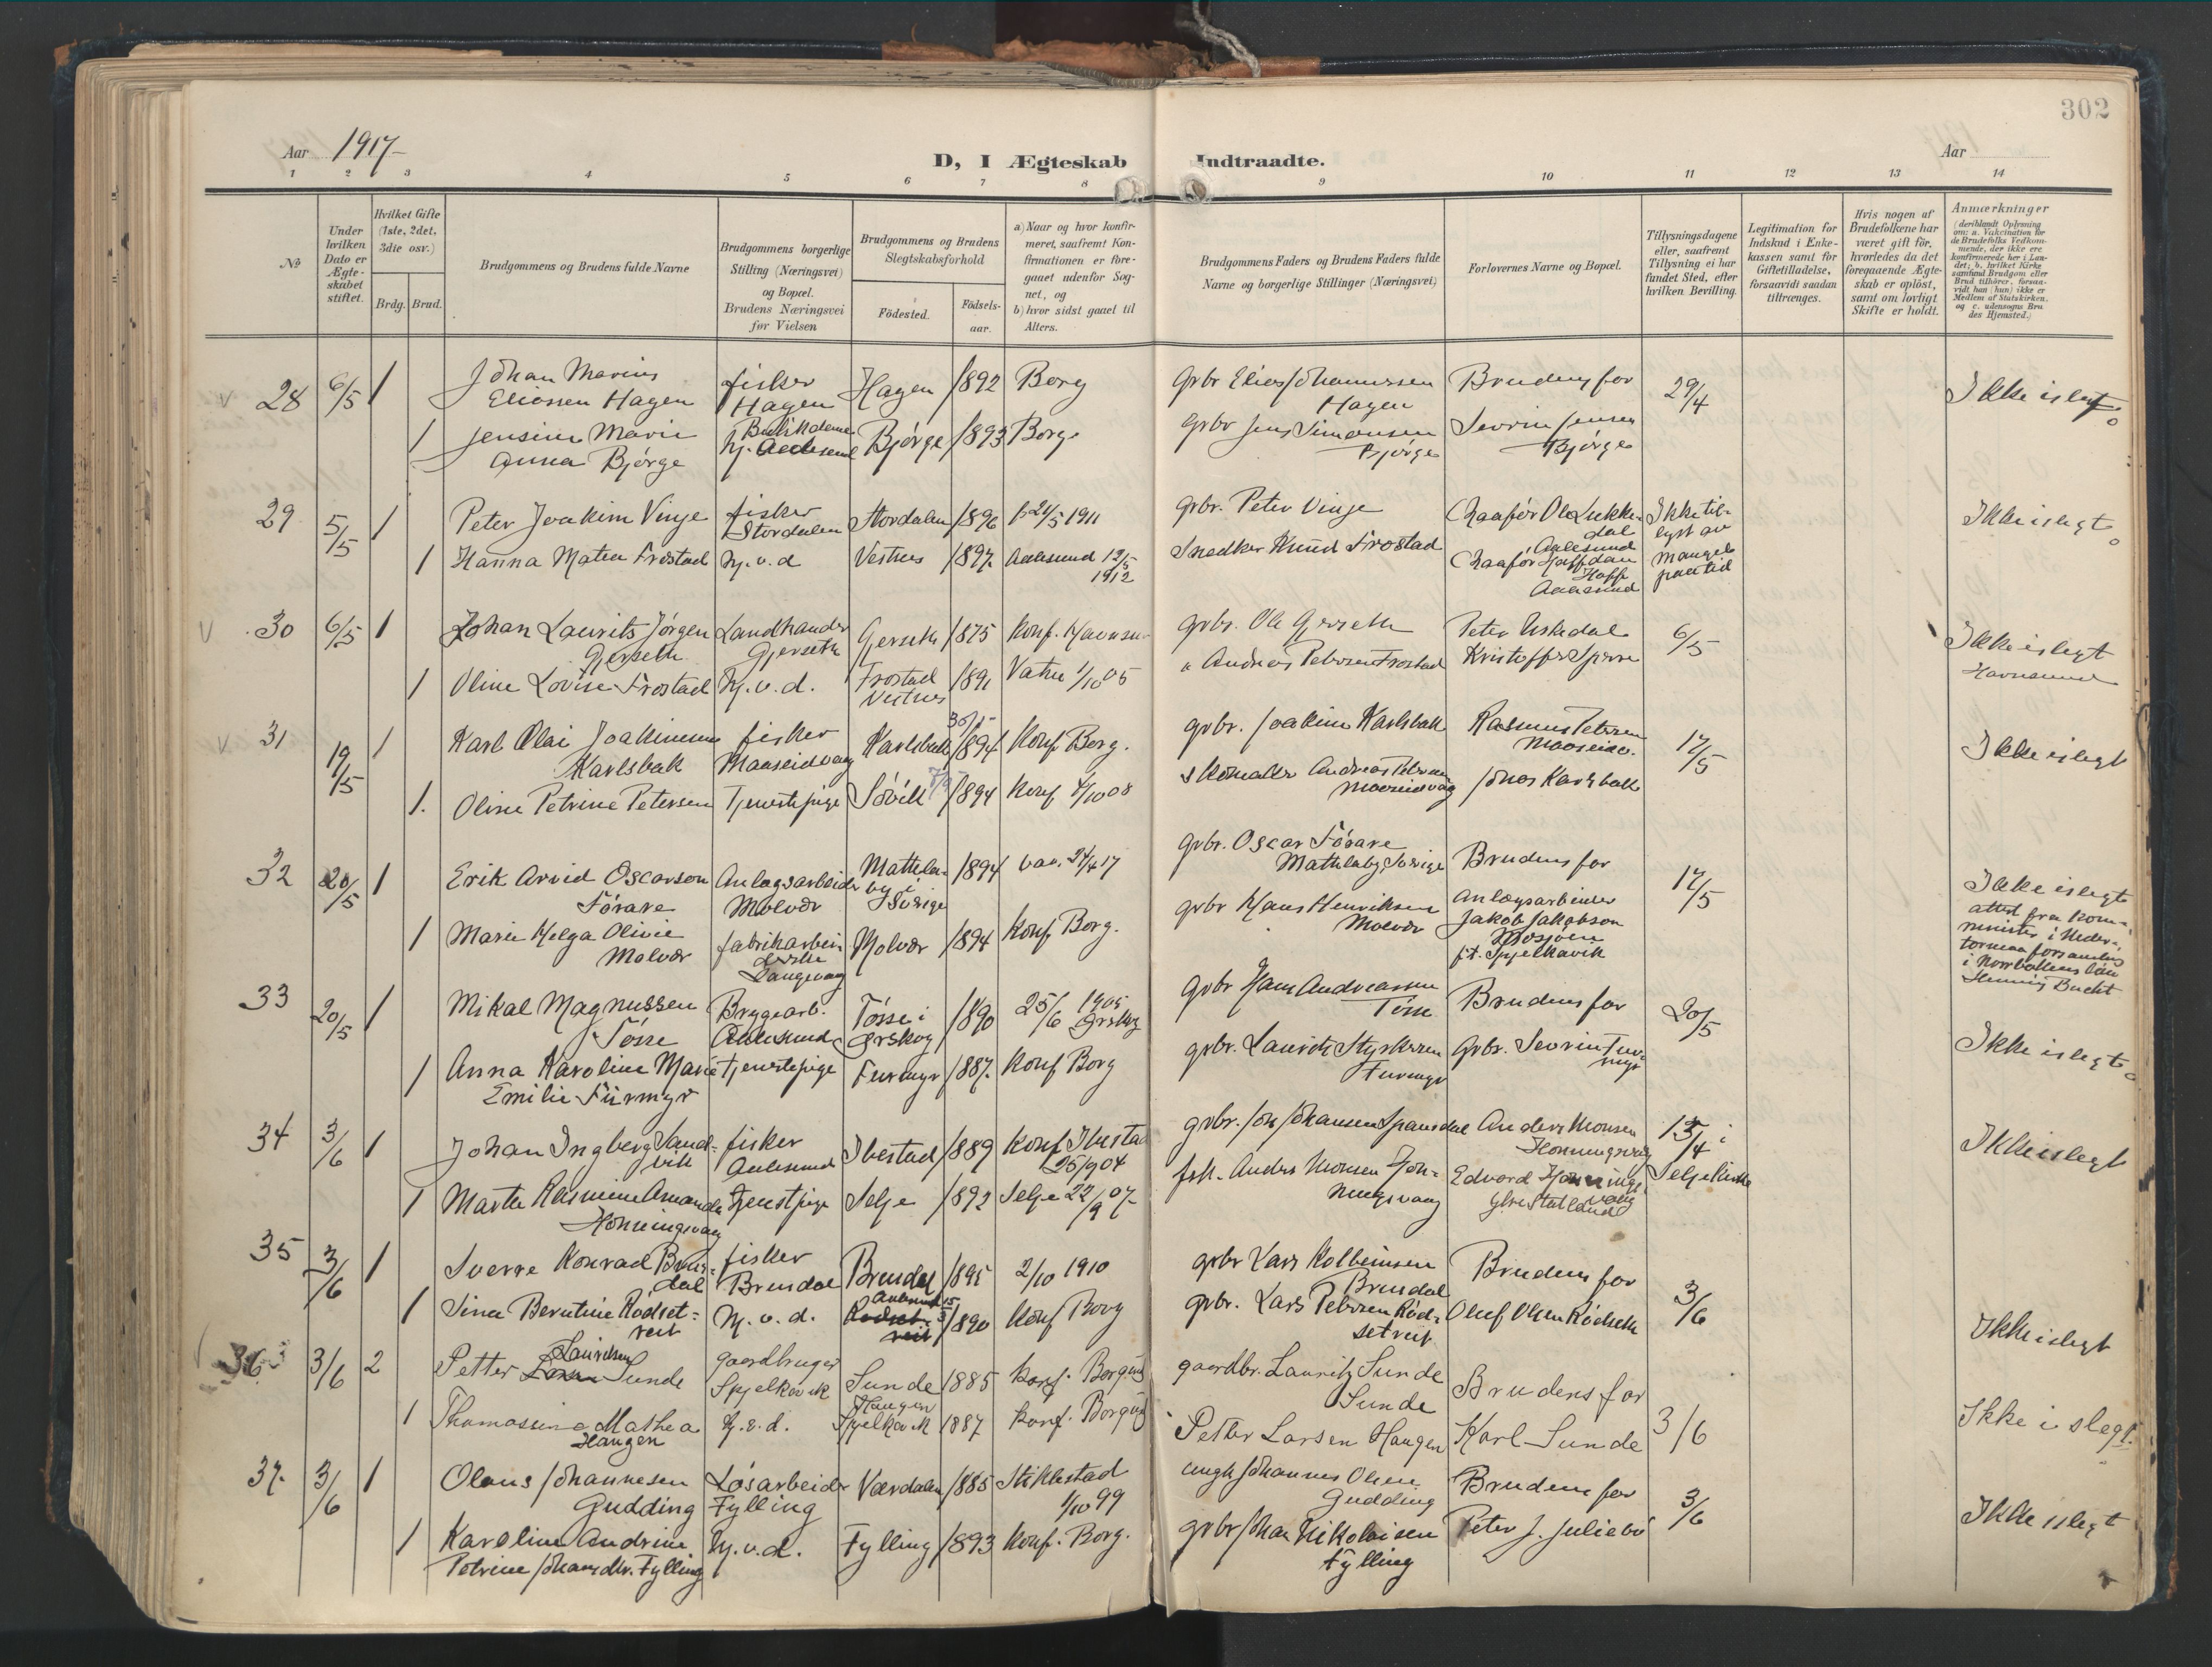 302
Aar 1917
D, I Ægteskab Indtraadte.
Aar
1 2 3 4 5 6 7 8 9 10 11 12 13 14
No
Under hvilken Dato er Ægteskabet stiftet.
Hvilket Gifte (1ste, 2det, 3die osv.)
Brdg. Brud.
Brudgommens og Brudens fulde Navne
Brudgommens borgerlige Stilling (Næringsvei) og Bopæl. Brudens Næringsvei før Vielsen
Brudgommens og Brudens Slegtskabsforhold
Födested.
Födsels-aar.
a) Naar og hvor konfirmeret, saafremt Konfirmationen er foregaaet udenfor Sognet, og
b) hvor sidst gaaet til Alters.
Brudgommens Faders og Brudens Faders fulde Navne og borgerlige Stillinger (Næringsvei)
Forlovernes Navne og Bopæl.
Tillysningsdagene eller, saafremt Tillysning ei har fundet Sted, efter hvilken Bevilling.
Legitimation for Indskud i Enkekassen samt for Giftetilladelse, forsaavidt saadan tiltrænges.
Hvis nogen af Brudefolkene har været gift för, hvorledes da det foregaaende Ægteskab er oplöst, samt om lovligt Skifte er holdt.
Anmærkninger
(deriblandt Oplysning om: a. Vaksination for de Brudefolks Vedkommende, der ikke ere konfirmerede her i Landet; b. hvilket Kirkesamfund Brudgom eller Brud tilhörer, forsaavidt han (hun) ikke er Medlem af Statskirken. og c. udensogns Brudes Hjemsted.)
28 6/5 1 Johan Marius fisker Hagen 1892 Borg grbr Elias Johannessen Brudens far 29/4 Ikke i slegt
Eliassen Hagen Hagen Hagen
1 Jensine Marie hj. Aalesund Bjørge 1893 Borg grbr Jens Simonsen Sevrin Jensen
Anna Bjørge Bjørge Bjørge
29 5/5 1 Peter Joakim Vinje fisker Stordalen 1896 21/5 1911 grbr. Peter Vinje Chaafør Ole Lukke- Ikke til- Ikke i slegt
Stordalen dal lyst av
1 Hanna Matea Frostad hj.v.d Vestnes 1897 Aalesund 12/5 Snedker Knud Frostad Aalesund mangel
1912 Chaafør Halfdan paa tid
Hoff
Aalesund
30 6/5 1 Johan Laurits Jørgen Landhandler Gjerseth 1875 Konf. grbr. Ole Gjerseth Peter 6/5 Ikke i slegt
Gjerseth Gjerseth
1 Oline Lovise Frostad hj.v.d. Frostad 1891 Vatne 1/10 05 " Andreas Petersen Frostad Kristoffer
Vestnes
31 19/5 1 Karl Olai Joakimsen fisker Karlsbak 1894 Konf Borg. grbr. Joakim Karlsbak Rasmus Petersen 17/5 Ikke i slegt
Karlsbak Maaseidvaag
1. Oline Petrine Petersen Tjenestepige Søvik 1894 Konf 4/10 08 skomaker Andreas Petersen Jonas Karlsbak
Maaseidvaag
32 20/5 1 Erik Arvid Oscarson Anlægsarbeider 1894 vac. 24/4 17 grbr. Oscar Förare Brudens far 17/5 Ikke i slegt
Förare Molvær by i Sverige Sverige attest fra kom-
1 Marie Helga Olivie fabrikarbei Molvær 1894 Konf Borg. grbr Hans Henriksen Anlægsarbeider minister i Neder-
Molvær derske Molvær Jakob Jakobson torneaa forsamling
Langevaag Mosjøen i Norrbottens län
pt. Spjelkavik Henning Bucht
33 20/5 1 Mikal Magnussen Bryggearb. Tøsse i 1890 25/6 1905 grbr Hans Andreassen Brudens far 20/5 Ikke i slegt
Tøsse Aalesund Ørskog Ørskog Tøsse
1 Anna Karoline Marie Tjenestepige Furmyr 1887. Konf Borg grbr. Laurits Styrkersen Grbr. Sevrin Fur-
Emilie Furmyr Furmyr myr
34 3/6 1 Johan Ingberg Sand- fisker Ibestad 1889 Konf Ibestad grbr. Joh Johansen Spansdal Anders Monsen 15/4 i Ikke i slegt
vik Aalesund 25/9 04 Honningsvaag
1 Marta Rasmine Amanda Tjenestpige Selje 1892 Selje 22/9 07. fisk. Anders Monsen Hon- Edvard Honnings- Selje kirke
Honningsvaag ningsvaag vaag
Statland
35 3/6 1 Sverre Konrad Breu- fisker Breudal 1895 2/10 1910 grbr Lars Kolbeinsen Brudens far 3/6 Ikke i slegt
dal Breudal Breudal
1 Sina Berntine Rødset- hj.v.d. Aalesund 1890 Konf Borg grbr. Lars Petersen Rød- Oluf Olsen Rødseth
reit setreit
36 3/6 2 Petter Lauritsen Sunde gaardbruger Sunde 1885 konf. Borgund gaardbr. Laurits Sunde Brudens far 3/6 Ikke i slegt.
Spjelkavik Sunde
1 Thomassine Mathea h.v.d. Haugen 1887 konf. Borgund Petter Larsen Haugen Karl Sunde
Haugen Spjelkavik
37. 3/6 1 Olaus Johannesen Løsarbeider Værdalen 1885 Stiklestad ungk Johannes Olsen Brudens far 3/6 Ikke i slegt
Gudding Fylling 1/10 99 Gudding
1 Karoline Andrine hj.v.d. Fylling 1893 Konf. Borg. grbr Johan Nikolaisen Peter J. Juliebø
Petrine Johansdtr. Fylling Fylling